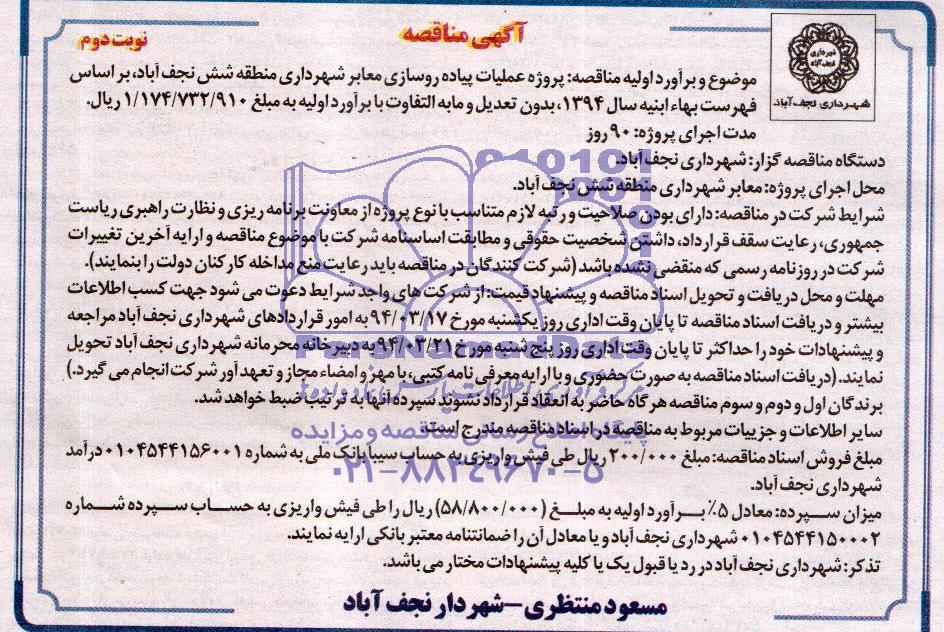 آگهی مناقصه
نوبت دوم
شهرداری نجف آباد
شهرداری نجف آباد
موضوع و برآورد اولیه مناقصه: پروژه عملیات پیاده روسازی معابر شهرداری منطقه شش نجف آباد، بر اساس
فهرست بهاء ابنیه سال ۱۳۹۴، بدون تعدیل و مابه التفاوت با برآورد اولیه به مبلغ ۱/۱۷۴/۷۳۲/۹۱۰ ریال.
مدت اجرای پروژه: ۹۰ روز
دستگاه مناقصه گزار: شهرداری نجف آباد.
محل اجرای پروژه: معابر شهرداری منطقه شش نجف آباد.
شرایط شرکت در مناقصه: دارای بودن صلاحیت و رتبه لازم متناسب با نوع پروژه از معاونت برنامه ریزی و نظارت راهبری ریاست
جمهوری، رعایت سقف قرارداد، داشتن شخصیت حقوقی و مطابقت اساسنامه شرکت با موضوع مناقصه و ارایه آخرین تغییرات
شرکت در روزنامه رسمی که منقضی نشده باشد (شرکت کنندگان در مناقصه باید رعایت منع مداخله کارکنان دولت را بنمایند).
مهلت و محل دریافت و تحویل اسناد مناقصه و پیشنهاد قیمت: از شرکت های واجد شرایط دعوت می شود جهت کسب اطلاعات
بیشتر و دریافت اسناد مناقصه تا پایان وقت اداری روز یکشنبه مورخ ۹۴/۰۳/۱۷ به امور قراردادهای شهرداری نجف آباد مراجعه
و پیشنهادات خود را حداکثر تا پایان وقت اداری روز پنج شنبه مورخ ۹۴/۰۳/۲۱ به دبیرخانه محرمانه شهرداری نجف آباد تحویل
نمایند. (دریافت اسناد مناقصه به صورت حضوری و با ارایه معرفی نامه کتبی، با مهر و امضاء مجاز و تعهد آور شرکت انجام می گیرد.)
برندگان اول و دوم و سوم مناقصه هر گاه حاضر به انعقاد قرارداد نشوند سپرده آنها به ترتیب ضبط خواهد شد.
سایر اطلاعات و جزییات مربوط به مناقصه در اسناد مناقصه مندرج است.
پایگاه اطلاع رسانی مناقصه و مزایده
مبلغ فروش اسناد مناقصه: مبلغ ۲۰۰/۰۰۰ ریال طی فیش واریزی به حساب سیبا بانک ملی به شماره ۰۱۰۴۵۴۴۱۵۶۰۰۱ درآمد
۰۲۱-۸۸۳۴۹۶۷۰-۵
شهرداری نجف آباد.
میزان سپرده: معادل ۵٪ برآورد اولیه به مبلغ (۵۸/۸۰۰/۰۰۰) ریال را طی فیش واریزی به حساب سپرده شماره
۰۱۰۴۵۴۴۱۵۰۰۰۲ شهرداری نجف آباد و یا معادل آن را ضمانتنامه معتبر بانکی ارایه نمایند.
تذکر: شهرداری نجف آباد در رد یا قبول یک یا کلیه پیشنهادات مختار می باشد.
مسعود منتظری - شهردار نجف آباد